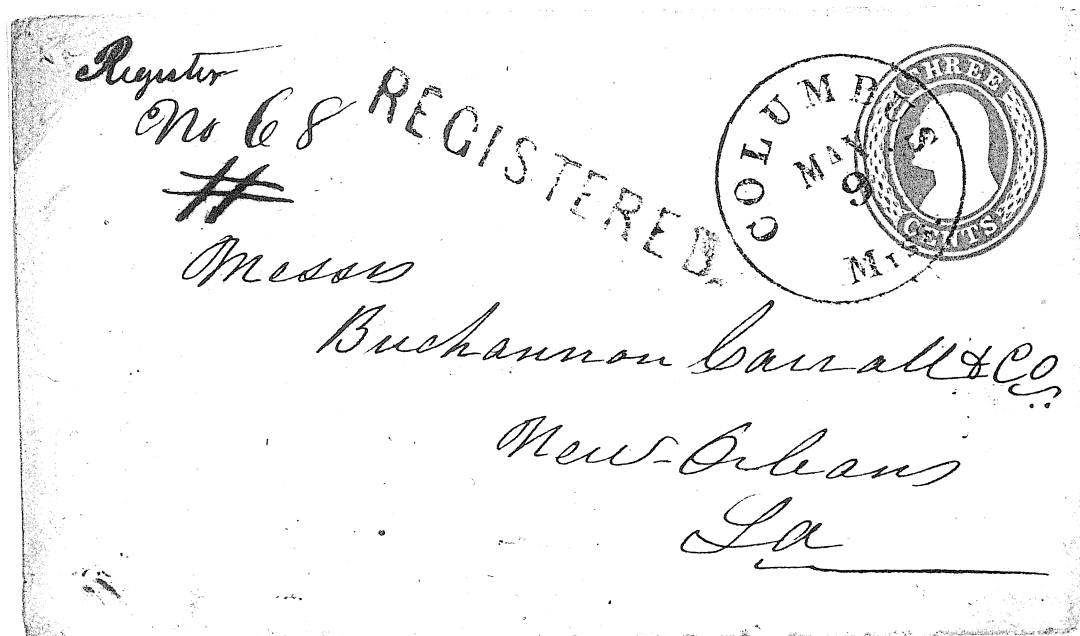 Register
No 68
REGISTERED.
COLUMBUS
MAY
9
MIS
THREE
CENTS
Messrs
Buchannon Carrall & Co.
New-Orleans
La